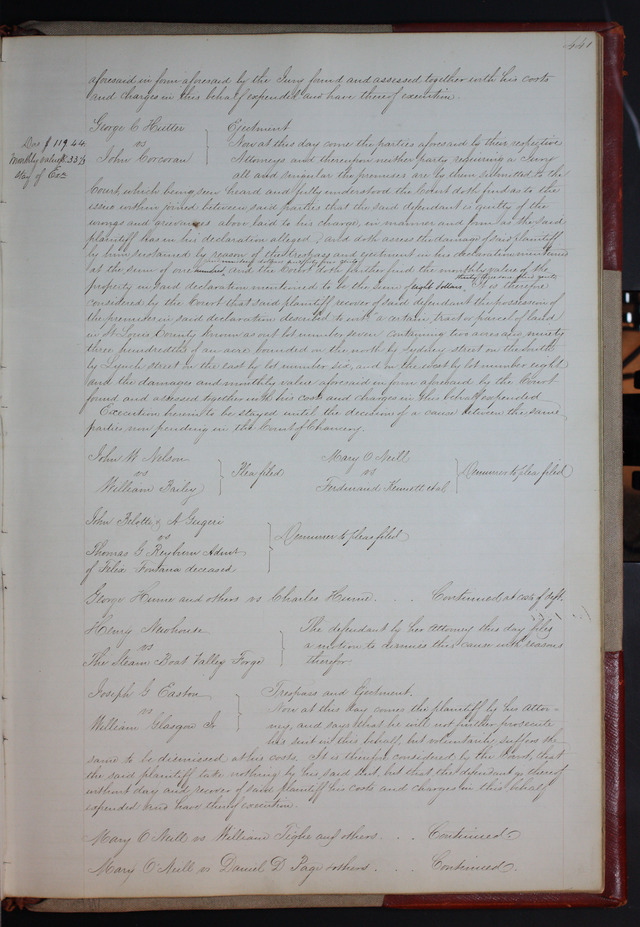 441
aforesaid in form aforesaid by the Jury found and assessed together with his costs
and charges in this behalf expended and have thereof execution.
Dam $119.44
Monthly value $33⅓
Stay of Exn
George C Hutter
vs
John Corcoran
Ejectment
Now at this day come the parties aforesaid by their respective
Attorneys and thereupon neither party requiring a Jury
all and singular the premises are by them submitted to the
Court, which being seen heard and fully understood the Court doth find as to the
issue within joined between said parties that the said defendant is guilty of the
wrongs and grievances above laid to his charge, in manner and form as the said
plaintiff has in his declaration alleged, and doth assess the damage of said plaintiff
by him sustained by reason of the trespass and ejectment in his declaration mentioned
and nineteen dollars and forty four cents
at the sum of one hundred, and the Court doth further find the monthly value of the
thirty three and a third cents
property in said declaration mentioned to be the sum of eight dollars. It is therefore
considered by the Court that said plaintiff recover of said defendant the possession of
the premises in said declaration described to wit a certain tract or parcel of land
in St Louis County known as out lot number seven containing two acres and ninety
three hundredths of an acre bounded on the north by Sydney street on the South
by Lynch street on the east by lot number six, and on the west by lot number eight
and the damages and monthly value aforesaid in form aforesaid by the Court
found and assessed together with his costs and charges in this behalf expended
Execution herein to be stayed until the decision of a cause between the same
parties now pending in the Court of Chancery.
John W Nelson
vs
William Bailey
Plea filed
Mary O Neill
vs
Ferdinand Kennett et al
Demurrer to plea filed
John Belotte & A Gugeri
vs
Thomas G Reyburn Admr
of Felix Fontana deceased
Demurrer to pleas filed
George Hume and others vs Charles Hume .... Continued at cost of deft.
Henry Newhouse
vs
The Steam Boat Valley Forge
The defendant by her attorney this day files
a motion to dismiss this cause with reasons
therefor
Joseph G Easton
vs
William Glasgow Jr
Trespass and Ejectment.
Now at this day comes the plaintiff by his Attor-
ney, and says that he will not further prosecute
his suit in this behalf, but voluntarily suffers the
same to be dismissed at his costs. It is therefore considered by the Court, that
the said plaintiff take nothing by his said suit, but that the defendant go thereof
without day and recover of said plaintiff his costs and charges in this behalf
expended and have thereof execution.
Mary O Neill vs William Tighe and others .... Continued.
Mary O'Neill vs Daniel D Page & others .... Continued.